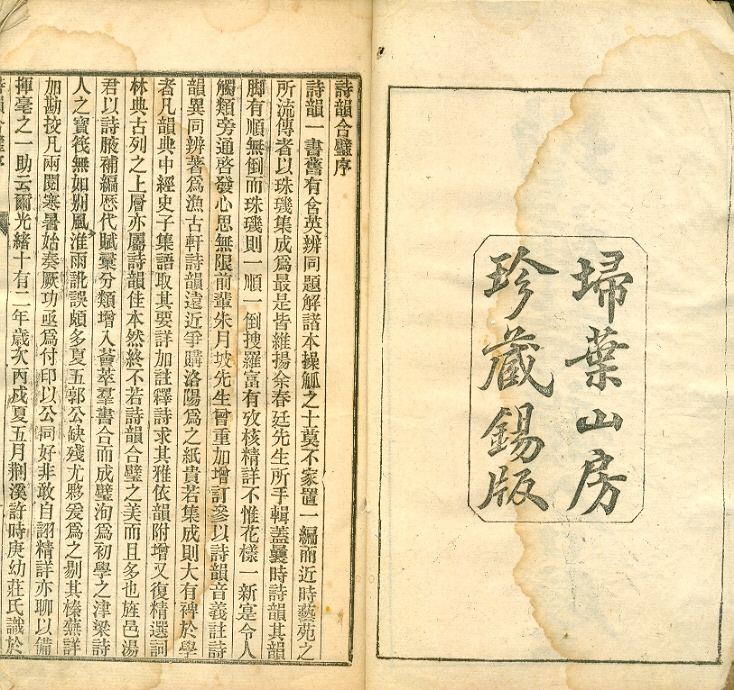 埽葉山房
珍藏錫版
詩韻合璧序
詩韻一書舊有含英辨同題解諸本操觚之士莫不家置一編而近時藝苑之
所流傳者以珠璣集成爲最是皆維揚余春廷先生所手輯蓋曩時詩韻其韻
脚有順無倒而珠璣則一順一倒搜羅富有攷核精詳不惟花樣一新寔令人
觸類旁通啓發心思無限前輩朱月坡先生曾重加增訂參以詩韻音義註詩
韻異同辨著爲漁古軒詩韻遠近爭購洛陽爲之紙貴若集成則大有裨於學
者凡韻典中經史子集語取其要詳加註釋詩求其雅依韻附增又復精選詞
林典古列之上層亦屬詩韻佳本然終不若詩韻合璧之美而且多也旌邑湯
君以詩腋補編歷代賦彙分類增入薈萃羣書合而成璧洵爲初學之津梁詩
人之寶筏無如朔風淮雨訛誤頗多夏五郭公缺殘尤夥爰爲之剔其榛蕪詳
加勘挍凡兩閱寒暑始奏厥功亟爲付印以公同好非敢自詡精詳亦聊以備
揮毫之一助云爾光緒十有二年歲次丙戌夏五月剡溪許時庚幼莊氏識於
詩韻合璧序